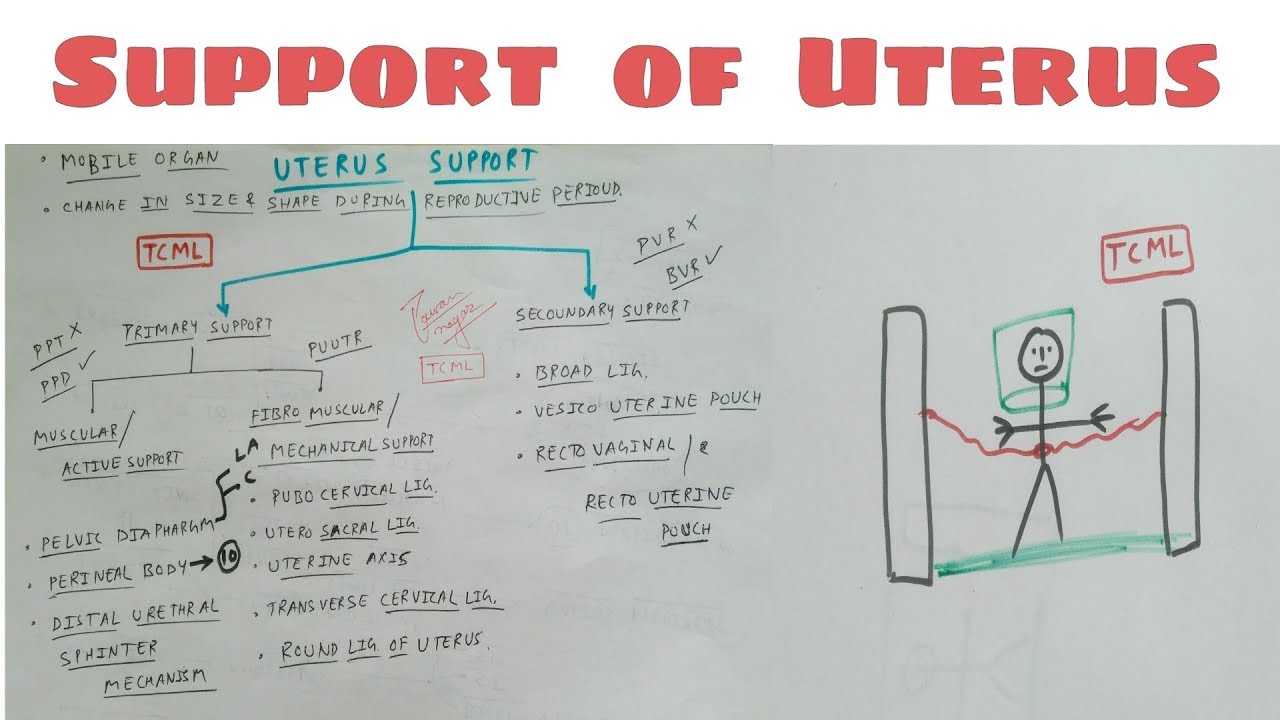 SUPPORT OF UTERUS
• MOBILE ORGAN
UTERUS SUPPORT
• CHANGE IN SIZE & SHAPE DURING REPRODUCTIVE PERIOUD.
TCML
PVR X
BVR ✓
TCML
PRIMARY SUPPORT
SECOUNDARY SUPPORT
PPT X
PPD ✓
PUUTR
TCML
MUSCULAR/
ACTIVE SUPPORT
FIBRO MUSCULAR/
MECHANICAL SUPPORT
LA
C
• PELVIC DIAPHARGM
• PERINEAL BODY → 10
• DISTAL URETHRAL
SPHINTER
MECHANISM
• PUBO CERVICAL LIG.
• UTERO SACRAL LIG.
• UTERINE AXIS
• TRANSVERSE CERVICAL LIG.
• ROUND LIG. OF UTERUS.
• BROAD LIG.
• VESICO UTERINE POUCH
• RECTO VAGINAL /
RECTO UTERINE
POUCH